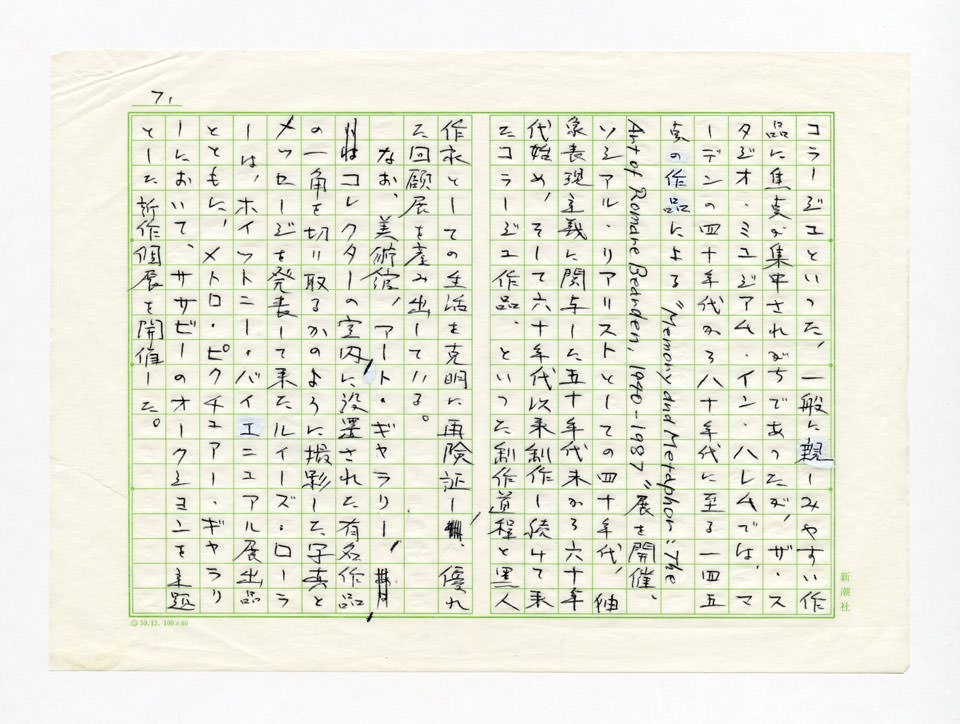 7,
コラージュといった、一般に親しみやすい作
品に焦点が集中されがちであったが、ザ・ス
タジオ・ミュジアム・イン・ハレムでは、マ
ーデンの四十年代から八十年代に至る一四五
点の作品による "Memory and Metaphor: The
Art of Romare Bearden, 1940-1987" 展を開催、
ソシアル・リアリストとしての四十年代、抽
象表現主義に関与した五十年代末から六十年
代始め、そして六十年代以来制作し続けて来
たコラージュ作品、といった制作道程と黒人
作家としての生活を克明に再険証し、優れ
た回顧展を産み出している。
なお、美術館、アート・ギャラリー、
はコレクターの室内に設置された有名作品
の一角を切り取るかのように撮影した写真と
メッセージを発表して来たルイーズ・ローラ
ーは、ホイットニー・バイエニュアル展出品
とともに、メトロ・ピクチュアー・ギャラリ
ーにおいて、ササビーのオークションを主題
とした新作個展を開催した。
新潮社
10.12. 100×80